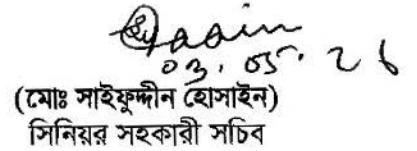 03. 05. 26
(মোঃ সাইফুদ্দীন হোসাইন)
সিনিয়র সহকারী সচিব